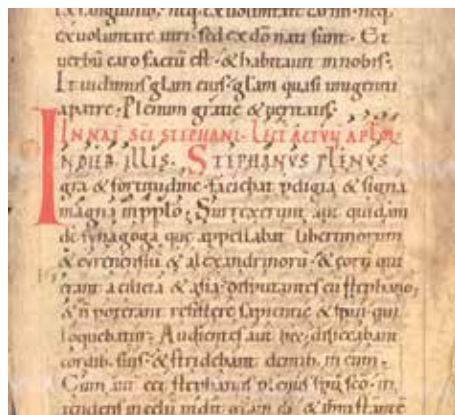 ex sanguinib; neq. ex uoluntate carnis. neq.
ex uoluntate uiri. sed ex dō nati sunt. Et
uerbū caro factū est. & habitauit in nobis.
Et uidimus glam eius. glam quasi unigeniti
a patre. Plenum gratie & ueritatis.
IN NAT SCI STEPHANI. LECT ACTVV APLOR
INDIEB. ILLIS. STEPHANVS PLENVS
gra & fortitudine. faciebat pdigia & signa
magna in pplo; Surrexerunt aut quidam
de synagoga que appellabat libertinorum
& cyrenensiu & alexandrinoru. & eorum qui
erant a cilicia & asia. disputantes cu stephano;
& ñ poterant resistere sapientie & spui qui
loquebatur; Audientes aut hec. dissecabant
cordib. suis. & stridebant dentib. in eum.
Cum aut eet stephanus plenus spu sco. in
tendens in celu uidit glam di. & ihm stante